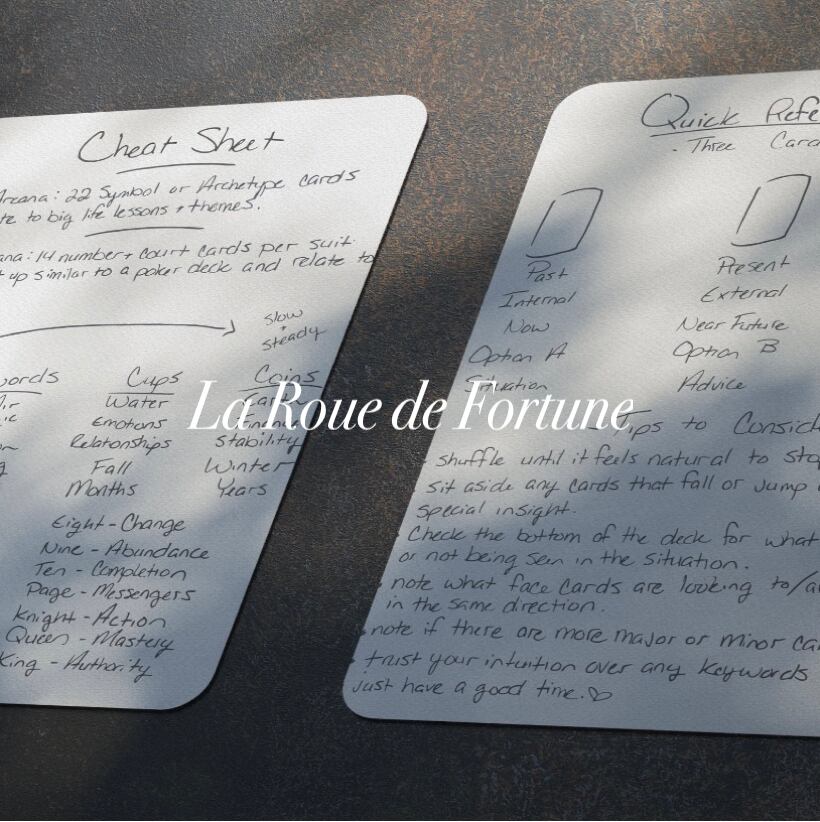 Cheat Sheet
Arcana: 22 Symbol or Archetype cards
to big life lessons + themes.
14 number + court cards per suit.
up similar to a poker deck and relate to
slow
+
steady
Cups
Coins
Water
Emotions
Relationships
Stability
Fall
Winter
Months
Years
Eight - Change
Nine - Abundance
Ten - Completion
Page - Messengers
Knight - Action
Queen - Mastery
King - Authority
La Roue de Fortune
Quick
Three
Past
Present
Internal
External
Now
Near Future
Option A
Option B
Situation
Advice
Tips to
shuffle until it feels natural to stop
sit aside any cards that fall or jump
special insight.
Check the bottom of the deck for what
or not being seen in the situation.
note what face cards are looking to/
in the same direction.
note if there are more major or minor
trust your intuition over any keywords
just have a good time.♡